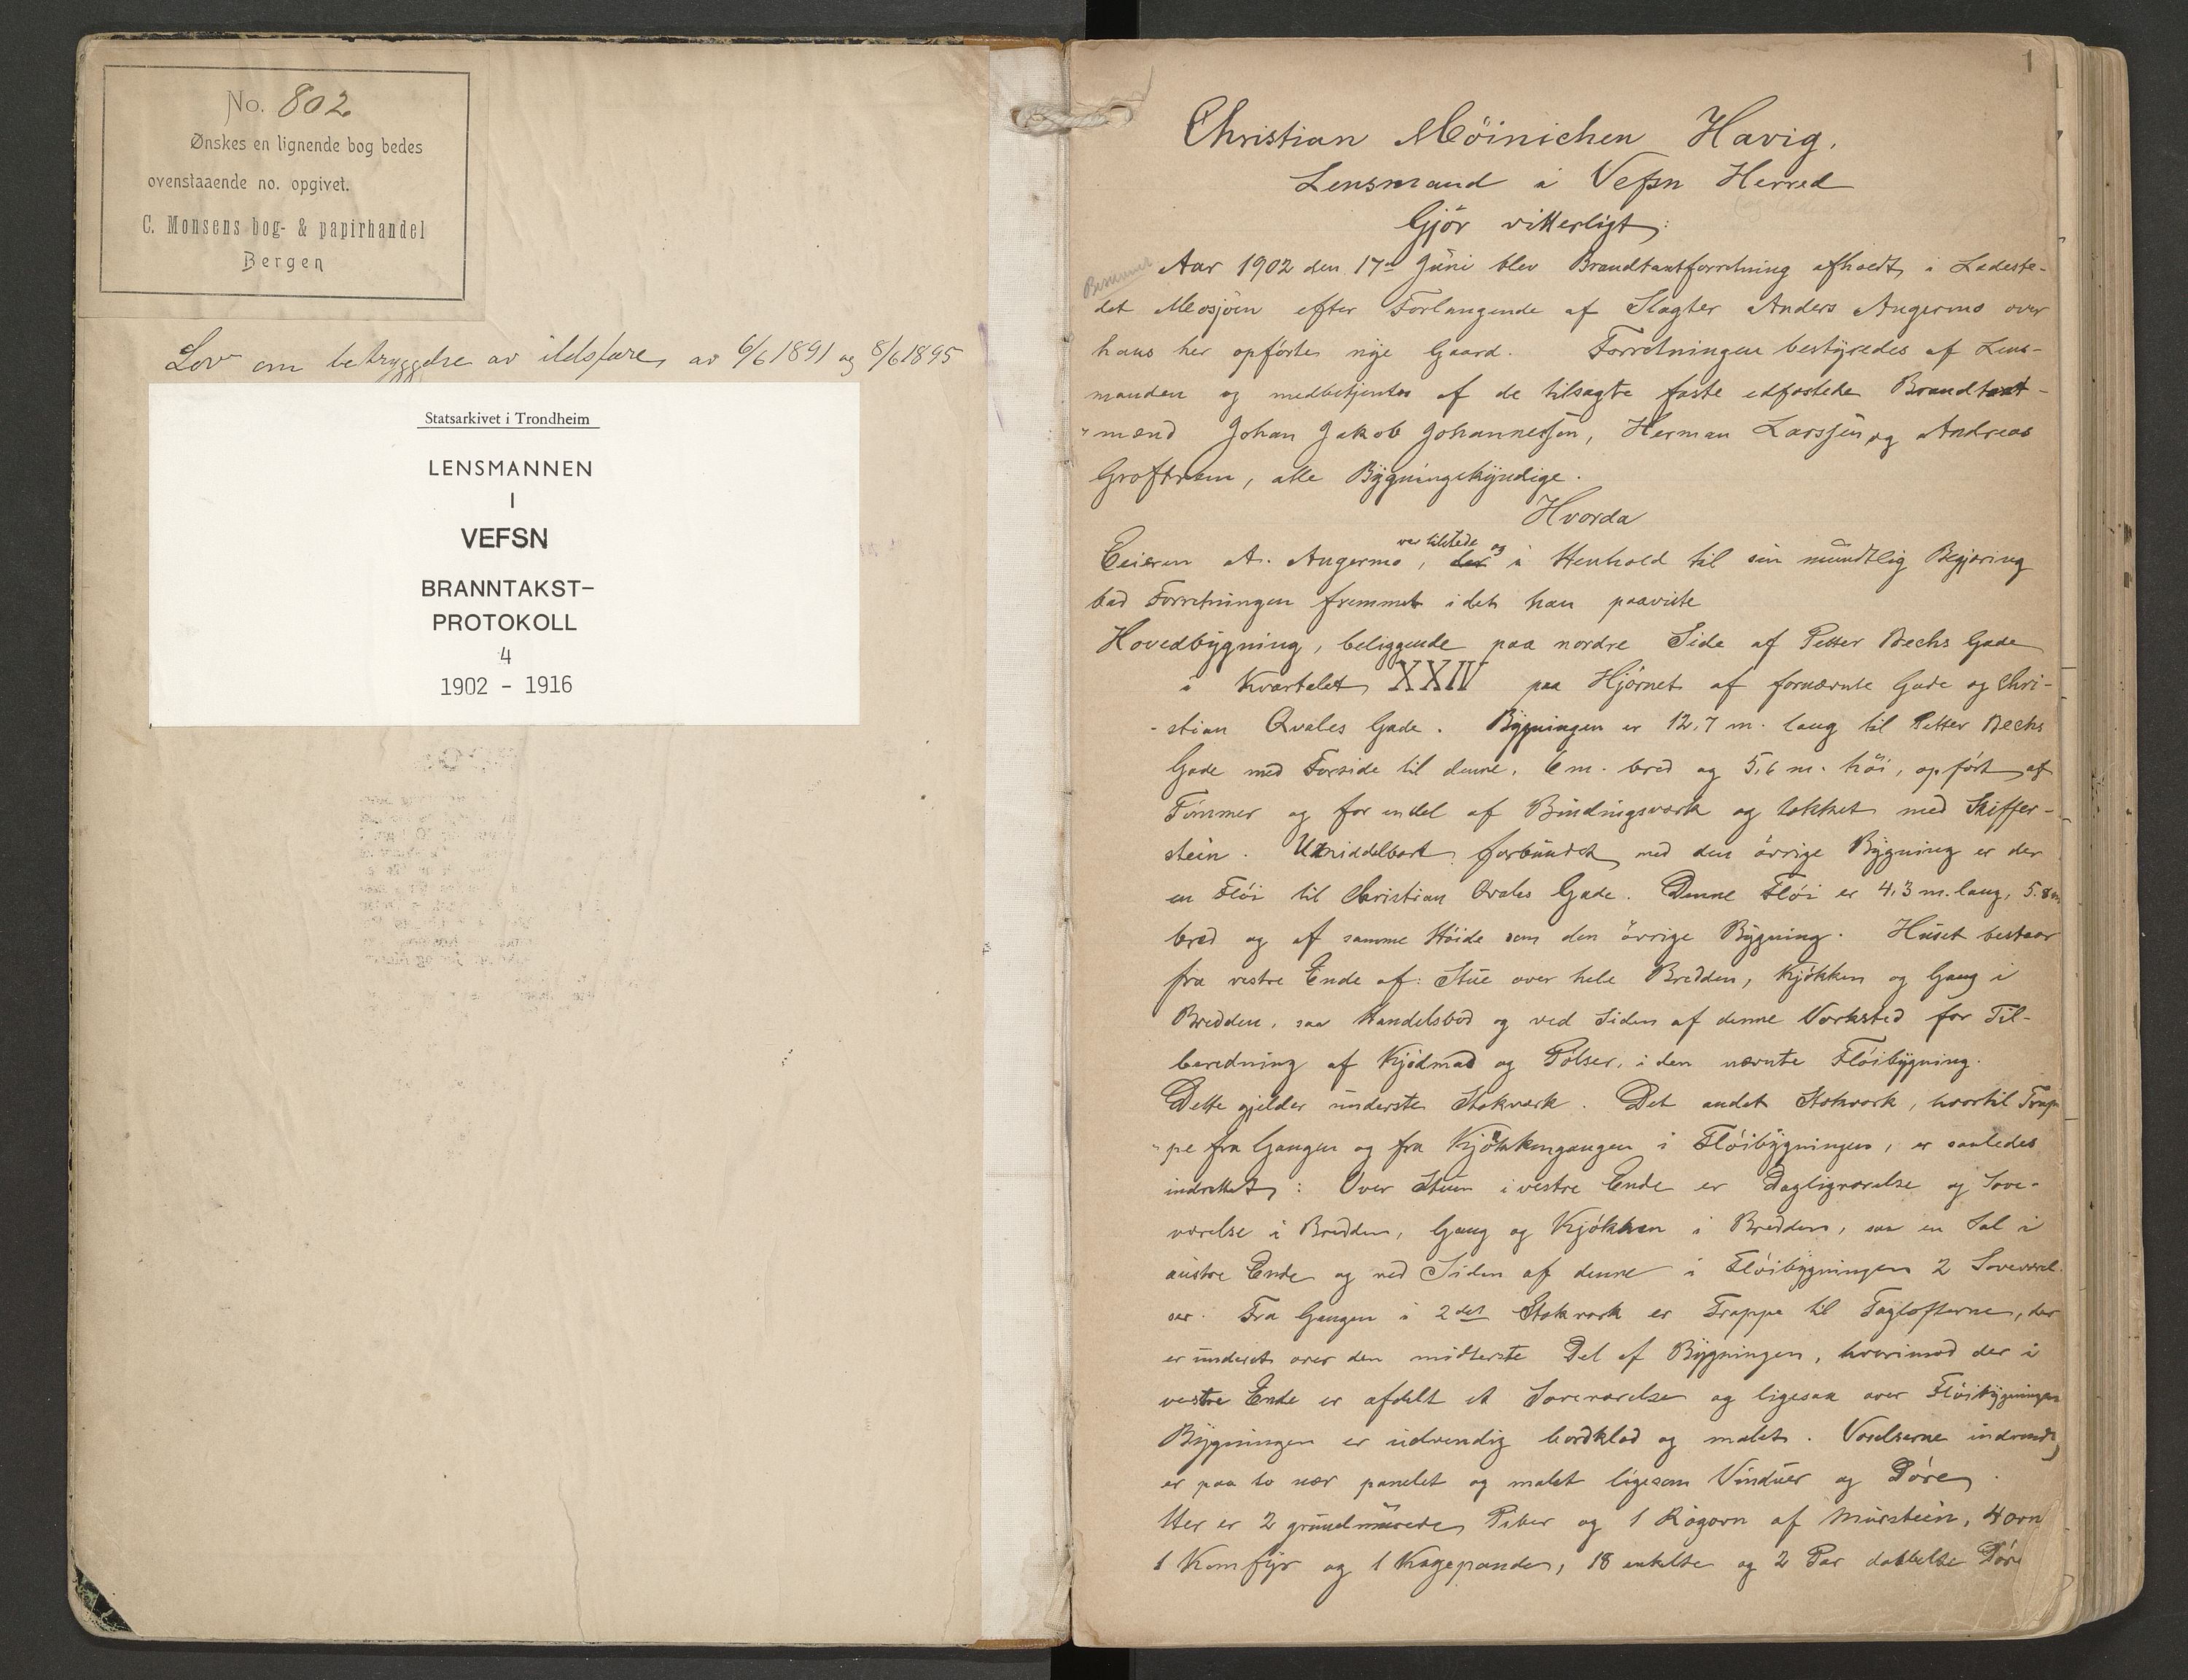 No. 802
Ønskes en lignende bog bedes
ovenstaaende no. opgivet.
C. Monsens bog- & papirhandel
Bergen
Lov om betryggelse av ildsfare, av 6/6 1891 og 8/6 1895
Statsarkivet i Trondheim
LENSMANNEN
I
VEFSN
BRANNTAKST-
PROTOKOLL
4
1902 - 1916
1
Christian Möinichen Havig,
Lensmand i Vefsn Herred
Gjör vitterligt:
Aar 1902 den 17de Juni blev Brandtaxtforretning afholdt i Ladeste-
det Mosjöen efter Forlangende af Slagter Anders Angermo over
hans her opförte nye Gaard. Forretningen bestyredes af Lens-
manden og medbetjentes af de tilsagte faste edfæstede Brandtaxt-
mænd Johan Jakob Johannessen, Herman Larssen og Andreas
alle Bygningskyndige.
Hvorda
Eieren A. Angermo, var tilstede og i Henhold til sin mundtlig Begjæring
bad Forretningen fremmet idet han paaviste
Hovedbygning, beliggende paa nordre Side af Petter Bechs Gade
i Kvartalet XXIV paa Hjörnet af fornævnte Gade og Chri-
-stian Qvales Gade. Bygningen er 12,7 m. lang til Petter Bechs
Gade med Forside til denne, 6 m. bred og 5,6 m. höi, opfört af
Tömmer og for en del af Bindingsværk og tækket med Skiffer-
stein. Umiddelbart forbundet med den övrige Bygning er der
en Flöi til Christian Qvales Gade. Denne Flöi er 4,3 m. lang, 5.8 m
bred og af samme Höide som den övrige Bygning. Huset bestaar
fra vestre Ende af: Stue over hele Bredden, Kjökken og Gang i
Bredden, saa Handelsbod og ved Siden af denne Værksted for Til-
beredning af Kjödmad og Pölser, i den nævnte Flöibygning.
Dette gjelder underste Stokværk. Det andet Stokværk, hvortil Trap
-pe fra Gangen og fra Kjökkengangen i Flöibygningen, er saaledes
indrettet: Over Stuen i vestre Ende er Dagligværelse og Sove-
værelse i Bredden, Gang og Kjökken i Bredden, saa en Sal i
austre Ende og ved Siden af denne i Flöibygningen 2 Soveværel-
ser. Fra Gangen i 2det Stokværk er Trappe til Taglofterne, der
er uinderet over den midterste Del af Bygningen, hvorimod der i
vestre Ende er afdelt et Soveværelse og ligesaa over Flöibygningen
Bygningen er udvendig bordklæd og malet. Værelserne indvendig
er paa to nær panelet og malet ligesom Vinduer og Döre.
Her er 2 grundmurede Piber og 1 Rögovn af Murstein, 4 ovn
1 Komfyr og 1 Kagepande, 18 enkelte og 2 Par dobbelte Döre